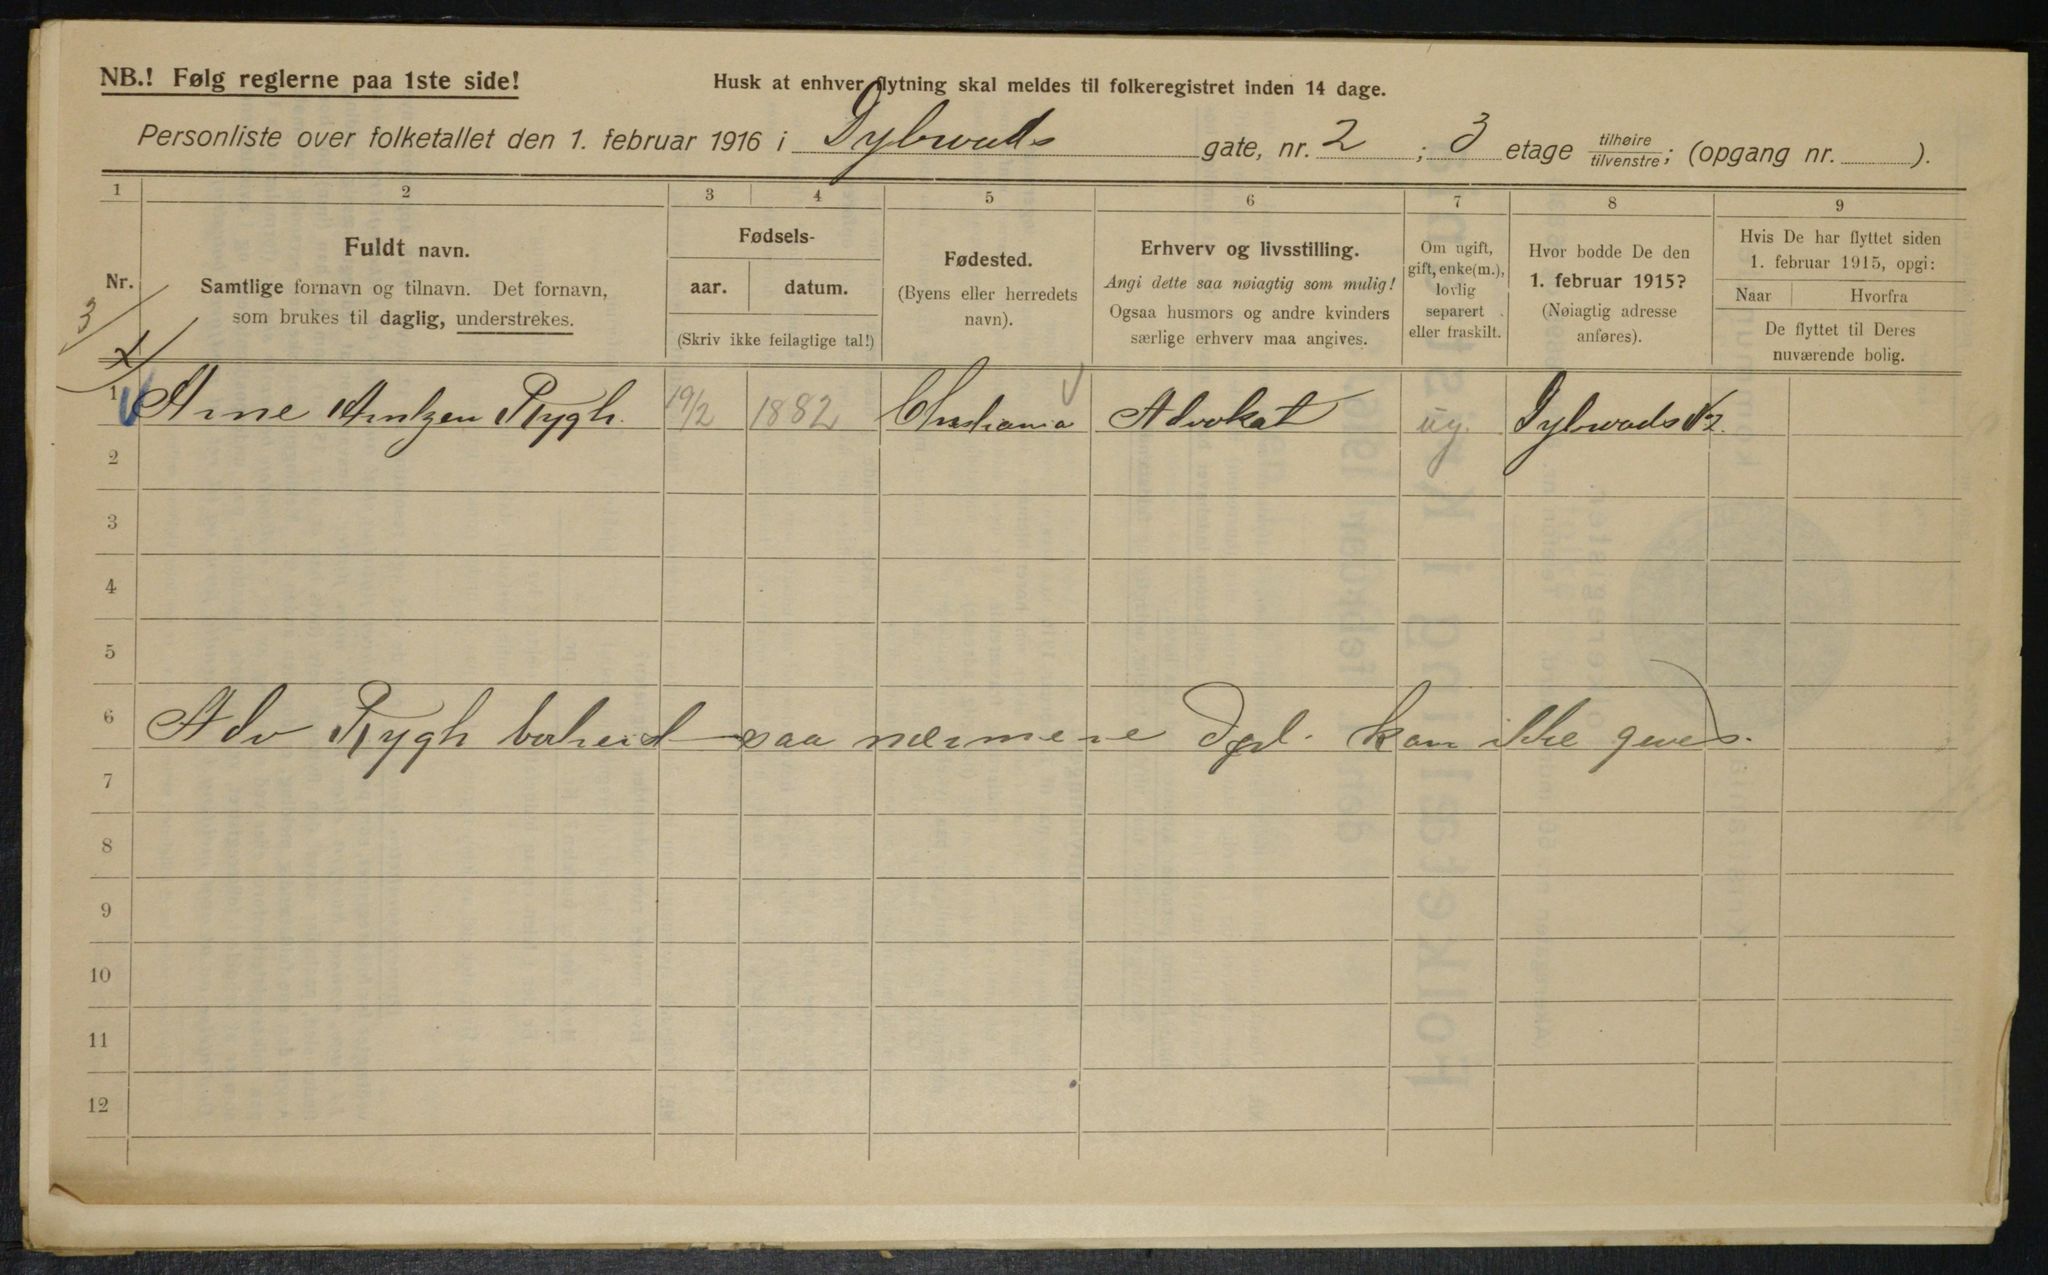 NB.! Følg reglerne paa 1ste side!
Husk at enhver flytning skal meldes til folkeregistret inden 14 dage.
Personliste over folketallet den 1. februar 1916 i Dybwads gate, nr. 2 ; 3 etage tilhøire/tilvenstre; (opgang nr. ).
1 2 3 4 5 6 7 8 9
Nr.
Fuldt navn.
Samtlige fornavn og tilnavn. Det fornavn,
som brukes til daglig, understrekes.
Fødsels-
aar. datum.
(Skriv ikke feilagtige tal!)
Fødested.
(Byens eller herredets
navn).
Erhverv og livsstilling.
Angi dette saa nøiagtig som mulig!
Ogsaa husmors og andre kvinders
særlige erhverv maa angives.
Om ugift,
gift, enke(m.),
lovlig
separert
eller fraskilt.
Hvor bodde De den
1. februar 1915?
(Nøiagtig adresse
anføres).
Hvis De har flyttet siden
1. februar 1915, opgi:
Naar Hvorfra
De flyttet til Deres
nuværende bolig.
3
1 Arne Arntzen Rygh. 19/2 1882 Christiania Advokat ug. Dybwads
2
3
4
5
6 Adv Rygh saa nærmere kan ikke gives.
7
8
9
10
11
12